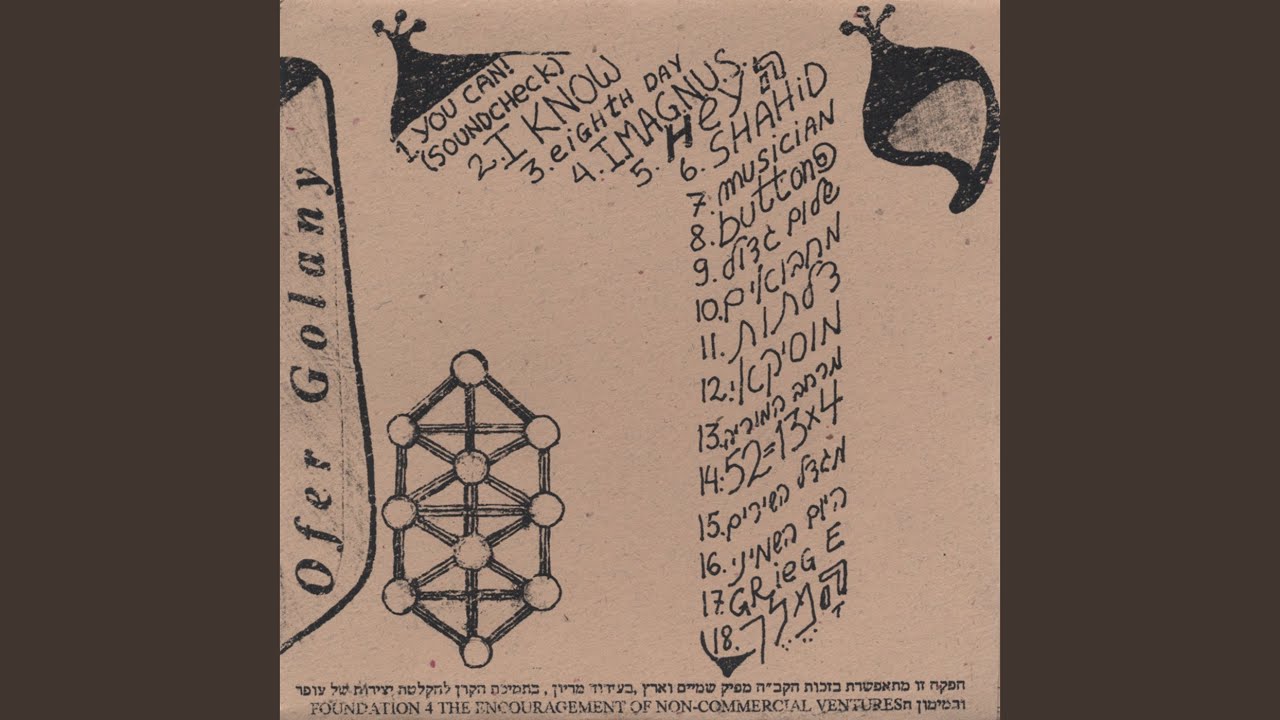 Ofer Golany
1. YOU CAN!
(SOUNDCHECK)
2. I KNOW
3. eigHtH DAY
4. IMAGNUS.
5. Hey הַ
6. SHAHiD
7. musiciAN
8. button
9. שלום גדול
10. מחבואים
11. דלתות
12. מוסיקאי
13. מרחב המוריה
14. 52=13x4
15. מגדל השירים
16. היום השמיני
17. GRieG E
18. הַמֶלֶך
הפקה זו מתאפשרת בזכות הקב"ה מפיק שמיים וארץ, בעידוד מריון, בתמיכת הקרן להקלטה יצירות של עופר
ובמימון הFOUNDATION 4 THE ENCOURAGEMENT OF NON-COMMERCIAL VENTURES